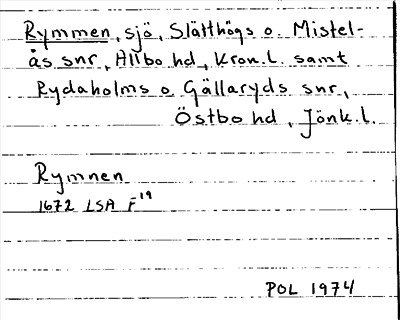 Rymmen, sjö, Slätthögs o. Mistel-
ås snr, Allbo hd, Kron.l. samt
Rydaholms o Gällaryds snr,
Östbo hd, Jönk.l.
Rymnen
1672 LSA F19
POL 1974